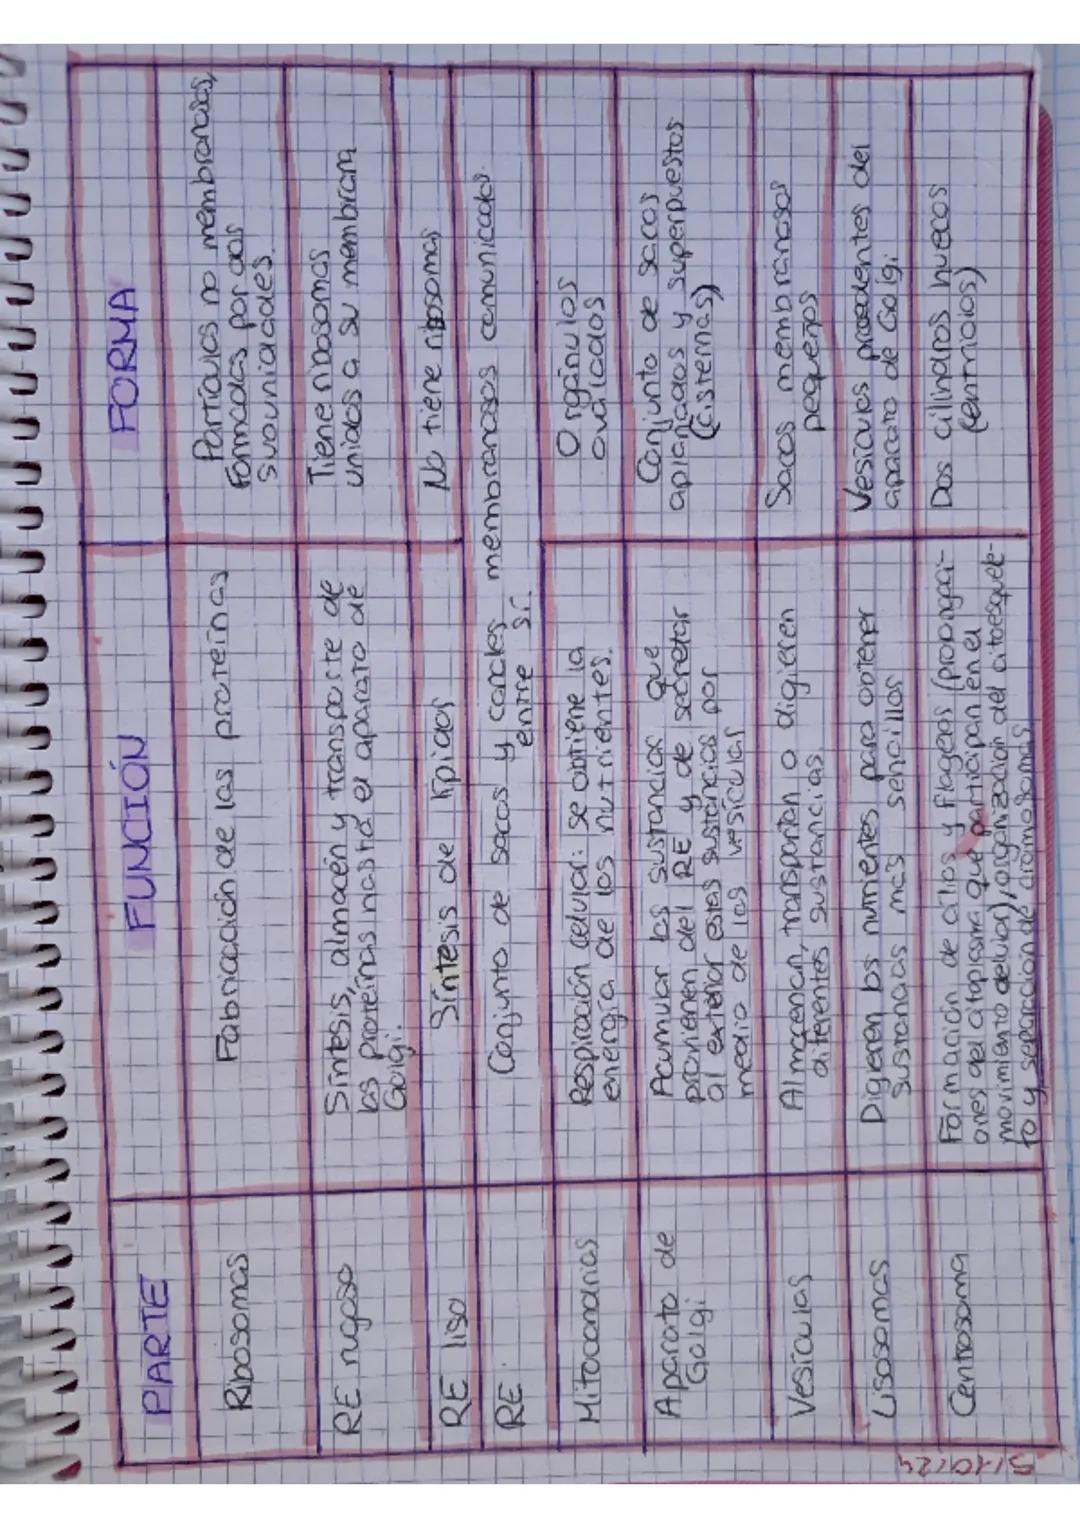 PARTE FUNCIÓN FORMA
Ribosomas
Fabricación de las proteínas
Partículas no membranosas,
Formadas por dos
subunidades.
RE rugoso
Síntesis, almacén y transporte de
las proteínas hasta el aparato de
Golgi.
Tiene ribosomas
unidos a su membrana
RE liso
Síntesis de lípidos
No tiene ribosomas
RE.
Conjunto de sacos y canales membranosos comunicados
entre sí.
Mitocondrias
Respiración celular: se obtiene la
energía de los nutrientes.
Orgánulos
ovalados
Aparato de
Golgi
Acumular las sustancias que
provienen del RE y de secretar
al exterior estas sustancias por
medio de las vesículas
Conjunto de sacos
aplanados y superpuestos
(cisternas)
Vesículas
Almacenan, transportan o digieren
diferentes sustancias
Sacos membranosos
pequeños
Lisosomas
Digieren los nutrientes para obtener
sustancias más sencillas
Vesículas procedentes del
aparato de Golgi
Centrosoma
Formación de cilios y flageos (prongaci-
ones del citoplasma que participan en el
movimiento celular), organización del citoesquele-
to y separación de cromosomas
Dos cilindros huecos
(centriolos)
5/10/24